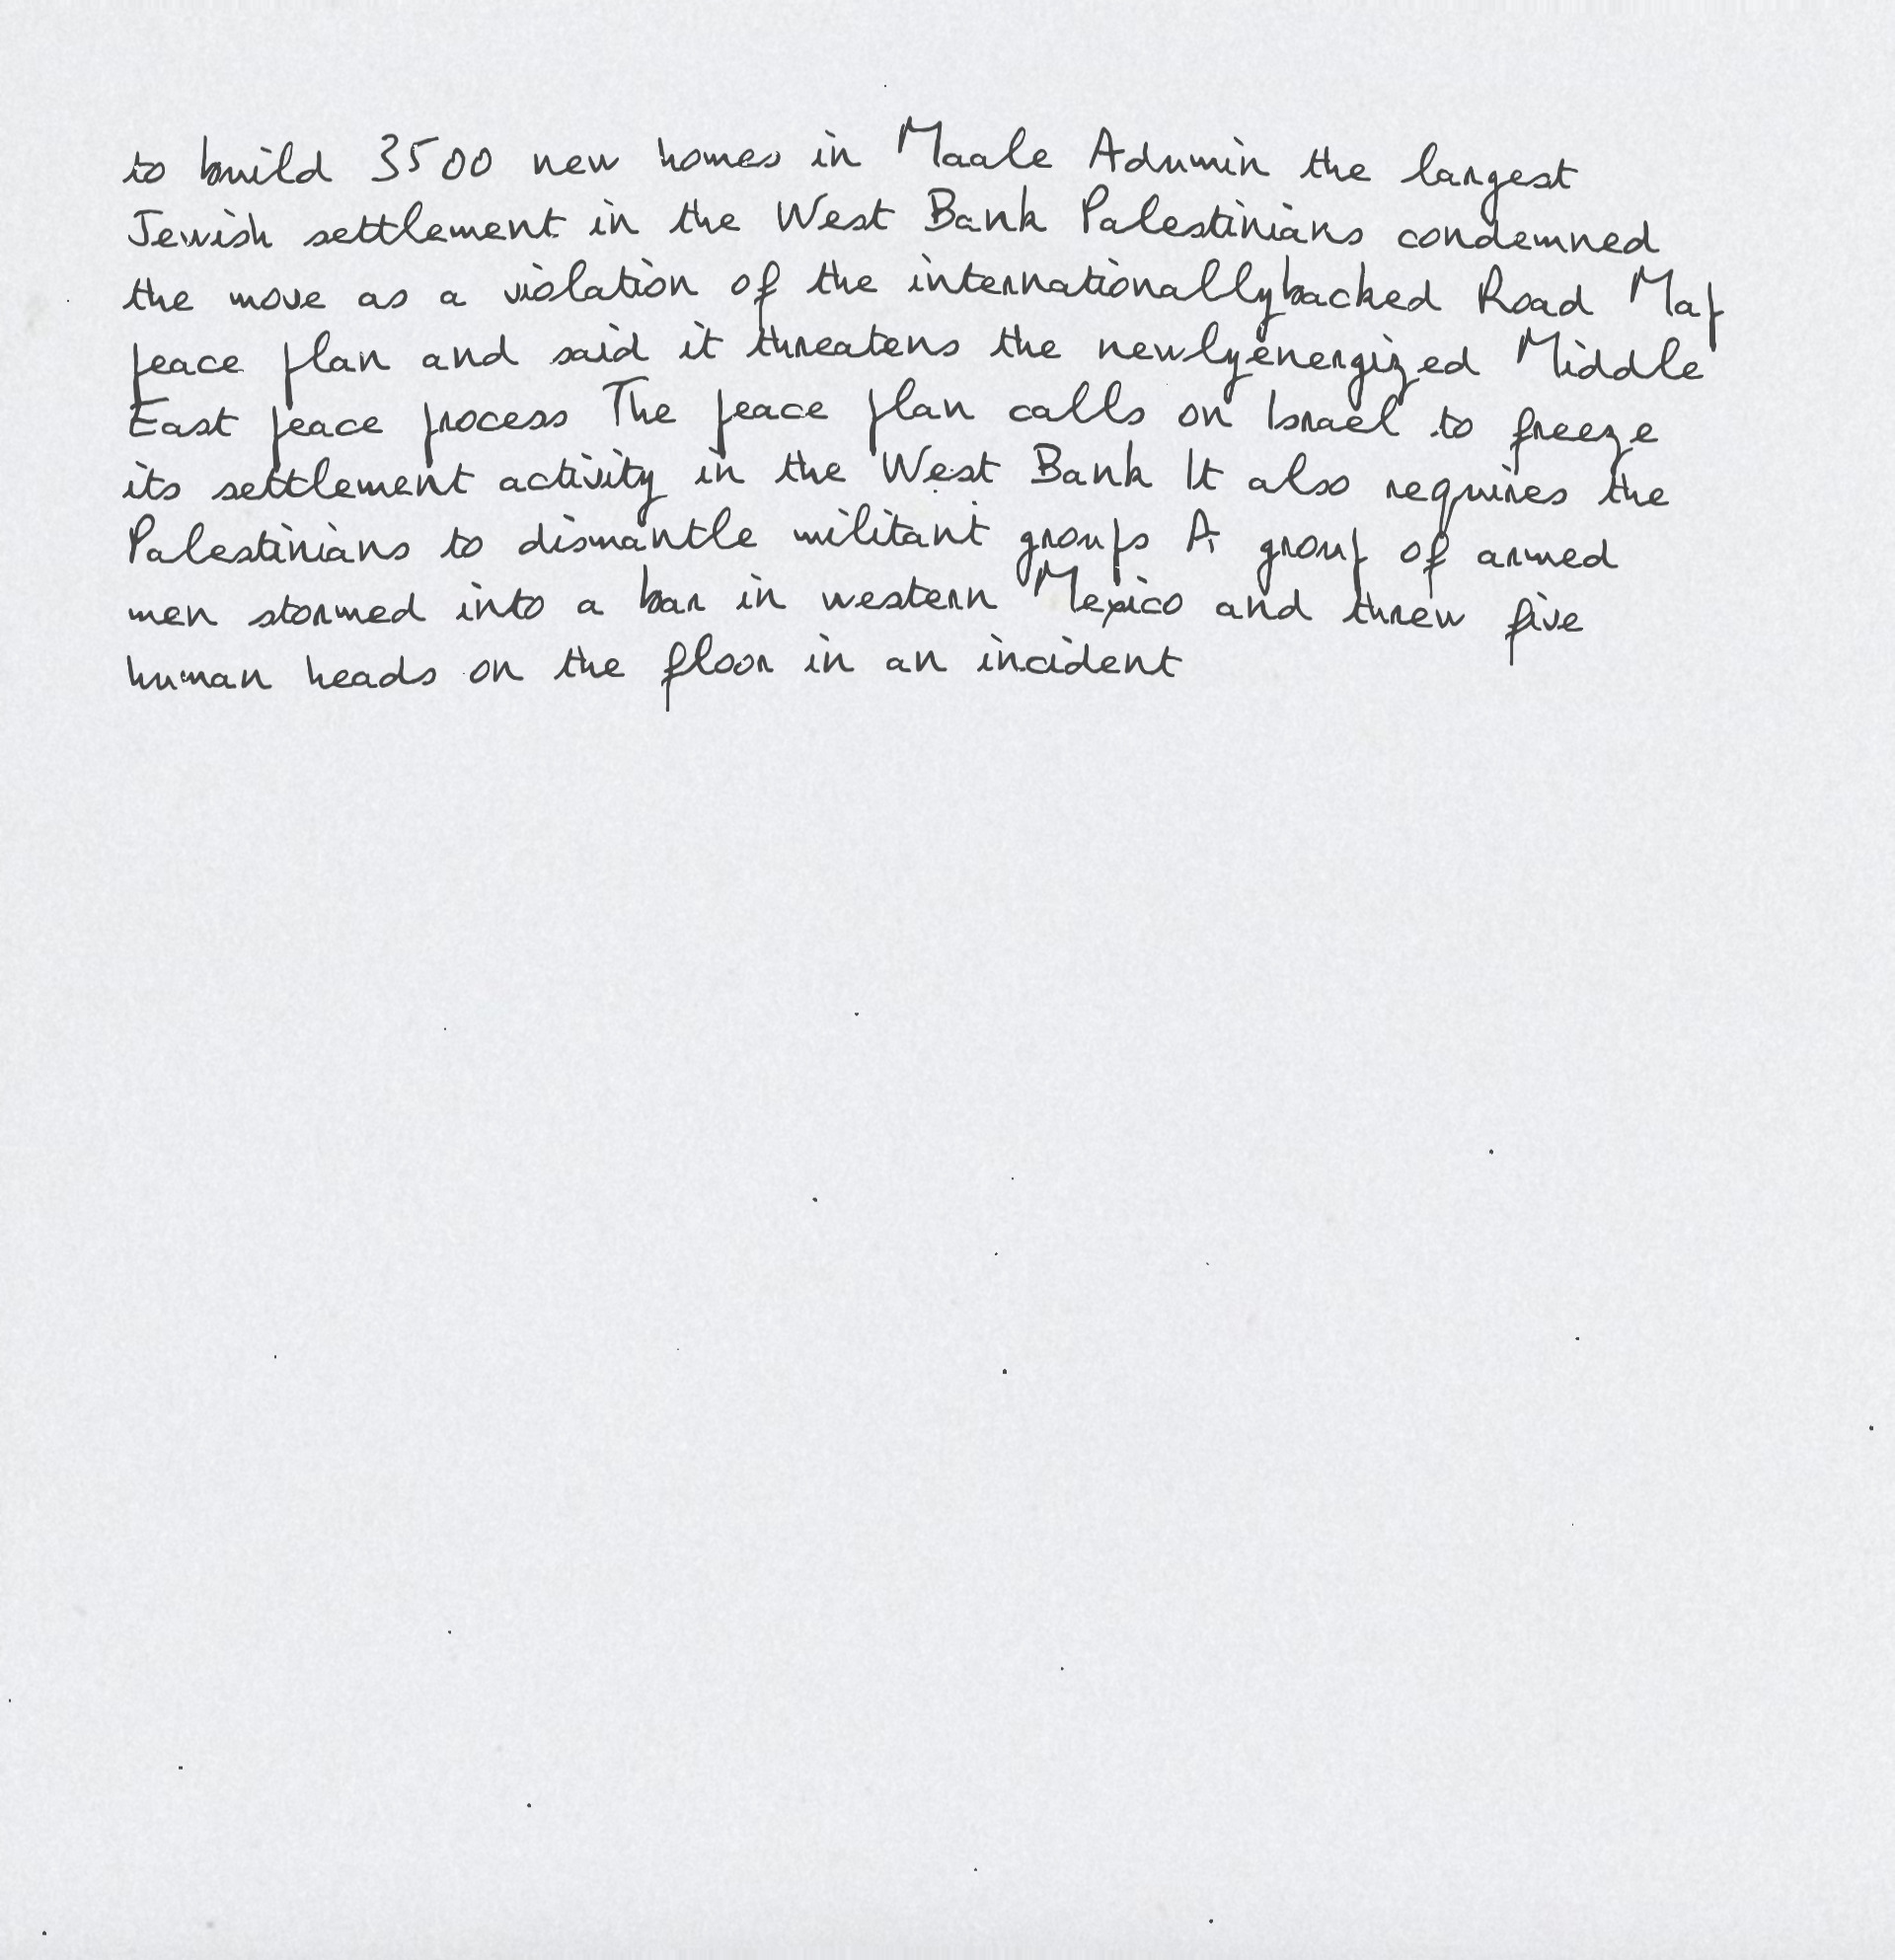 to build 3500 new homes in Maale Adumim the largest
Jewish settlement in the West Bank Palestinians condemned
the move as a violation of the internationallybacked Road Map
peace plan and said it threatens the newlyenergized Middle
East peace process The peace plan calls on Israel to freeze
its settlement activity in the West Bank It also requires the
Palestinians to dismantle militant groups A group of armed
men stormed into a bar in western Mexico and threw five
human heads on the floor in an incident